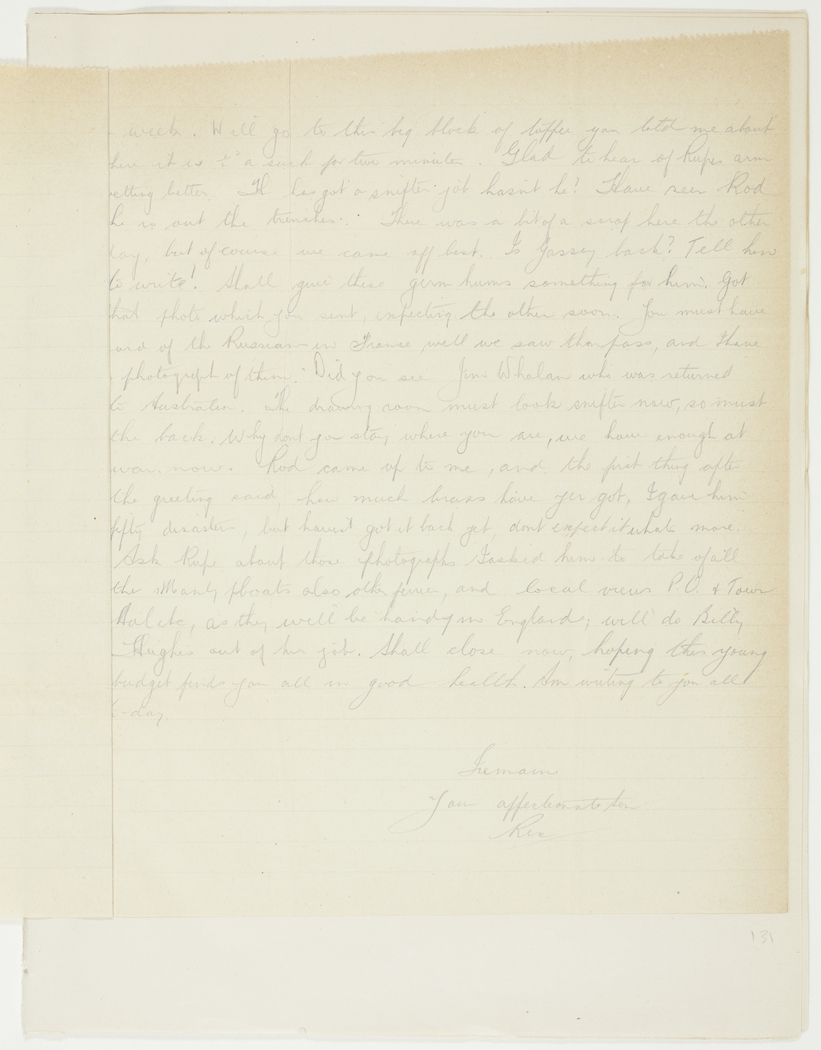 week. Will go to this big block of toffee you told me about
here it is a such for two minutes. Glad to hear of Rupes arm
etting better. He has got a snifter job hasn't he? Have seen Rod
he is out the trenches. There was a bit of a scrap here the other
day, but of course we came off best. Is Gassey back? Tell him
to write! Shall give these germ huns something for him. Got
that photo which you sent, expecting the other soon. You must have
ard of the Russians in France, well we saw them pass, and I have
photograph of them. Did you see Jim Whalan who was returned
to Australia. The drawing room must look snifter now, so must
the back. Why dont you stay where you are, we have enough at
war now. Rod came up to me, and the first thing after
the greeting said, how much brass have yer got, I gave him
fifty disasters, but havent got it back yet, dont expect it whats more.
Ask Rupe about those photographs I asked him to take of all
the Manly floats also other ferries, and local views P.O. & Town
Hal etc, as they will be handy in England, will do Billy
Hughes out of his job. Shall close now, hoping this young
budget finds you all in good health. Am writing to you all
to-day.
I remain
Your affectionate son
Rex
131